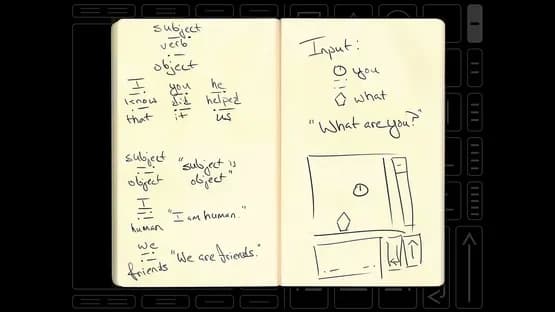 subject
verb
object
I you he
know did helped
that it us
subject
object
"subject is object"
I
human
"I am human."
we
friends
"We are friends."
Input:
you
what
"What are you?"